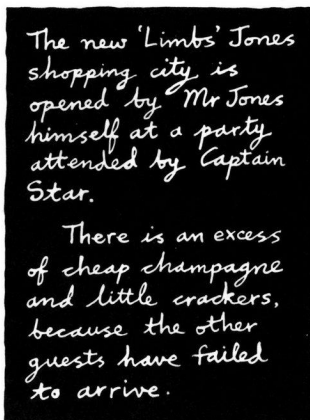 The new 'Limbs' Jones
shopping city is
opened by Mr Jones
himself at a party
attended by Captain
Star.
There is an excess
of cheap champagne
and little crackers,
because the other
guests have failed
to arrive.